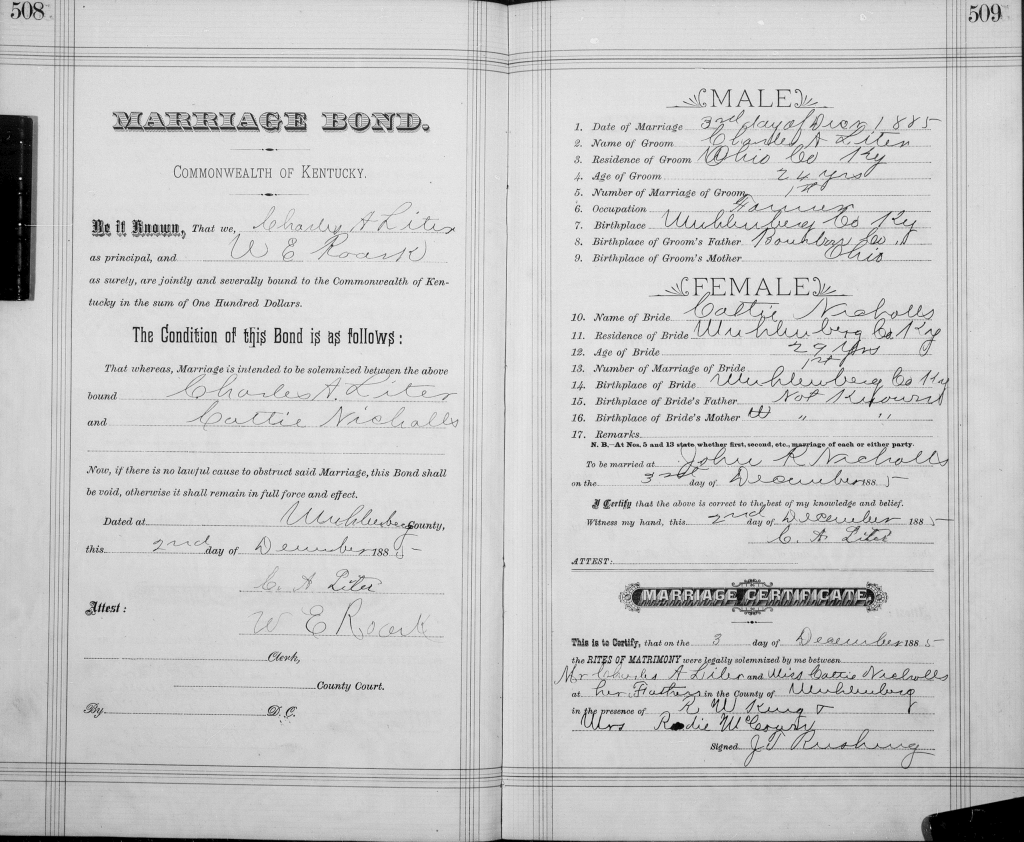 508
MARRIAGE BOND.
COMMONWEALTH OF KENTUCKY.
Be it Known, That we, Charles A Liter
as principal, and W E Roark
as surety, are jointly and severally bound to the Commonwealth of Ken-
tucky in the sum of One Hundred Dollars.
The Condition of this Bond is as follows:
That whereas, Marriage is intended to be solemnized between the above
bound Charles A. Liter
and Cattie Nicholls
Now, if there is no lawful cause to obstruct said Marriage, this Bond shall
be void, otherwise it shall remain in full force and effect.
Dated at Muhlenberg County,
this 2nd day of December 1885
C. A Liter
Attest:
W E Roark
Clerk,
County Court.
By D.C.
509
MALE
1. Date of Marriage 3rd day of Decr 1885
2. Name of Groom Charles A Liter
3. Residence of Groom Ohio Co Ky
4. Age of Groom 24 yrs
5. Number of Marriage of Groom 1st
6. Occupation Farmer
7. Birthplace Muhlenberg Co Ky
8. Birthplace of Groom's Father Co
9. Birthplace of Groom's Mother Ohio
FEMALE
10. Name of Bride Cattie Nicholls
11. Residence of Bride Muhlenberg Co Ky
12. Age of Bride 29 Yrs
13. Number of Marriage of Bride 1st
14. Birthplace of Bride Muhlenberg Co Ky
15. Birthplace of Bride's Father Not Known
16. Birthplace of Bride's Mother " "
17. Remarks
N. B.—At Nos. 5 and 13 state whether first, second, etc., marriage of each or either party.
To be married at John R Nicholls
on the 3 day of December 1885
I Certify that the above is correct to the best of my knowledge and belief.
Witness my hand, this 2nd day of December 1885
C. A Liter
ATTEST:
MARRIAGE CERTIFICATE.
This is to Certify, that on the 3 day of December 1885
the RITES OF MATRIMONY were legally solemnized by me between
Mr Charles A Liter and Miss Cattie Nicholls
at her Fathers in the County of Muhlenberg
in the presence of R W King &
Mrs Rodie
Signed J T Rushing